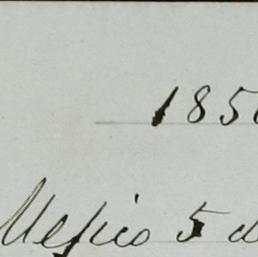 185
Mejico 5 d